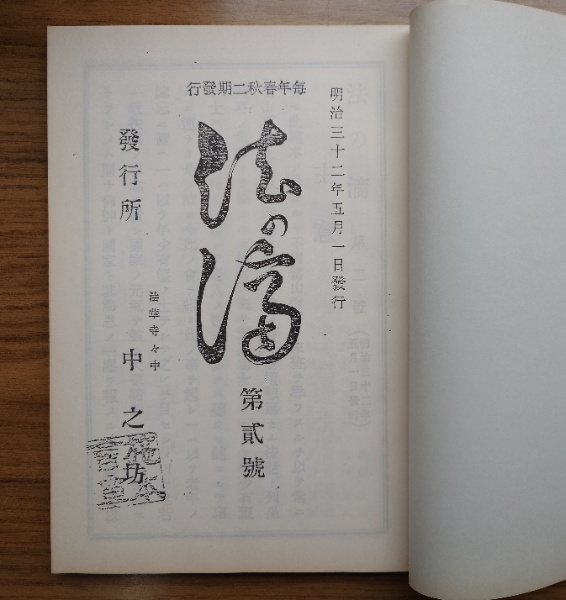 每年春秋二期發行
明治三十二年五月一日發行
法の滴
第貳號
發行所
法華寺々中
中之坊